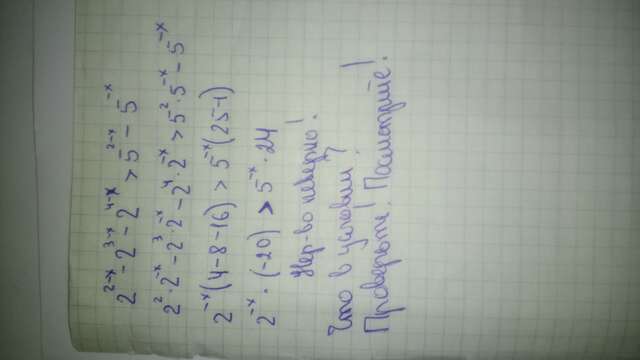 2²⁻ˣ - 2³⁻ˣ - 2⁴⁻ˣ > 5²⁻ˣ - 5⁻ˣ
2²·2⁻ˣ - 2³·2⁻ˣ - 2⁴·2⁻ˣ > 5²·5⁻ˣ - 5⁻ˣ
2⁻ˣ(4-8-16) > 5⁻ˣ(25-1)
2⁻ˣ·(-20) > 5⁻ˣ·24
Нер-во неверно!
Что в условии?
Проверьте! Посмотрите!